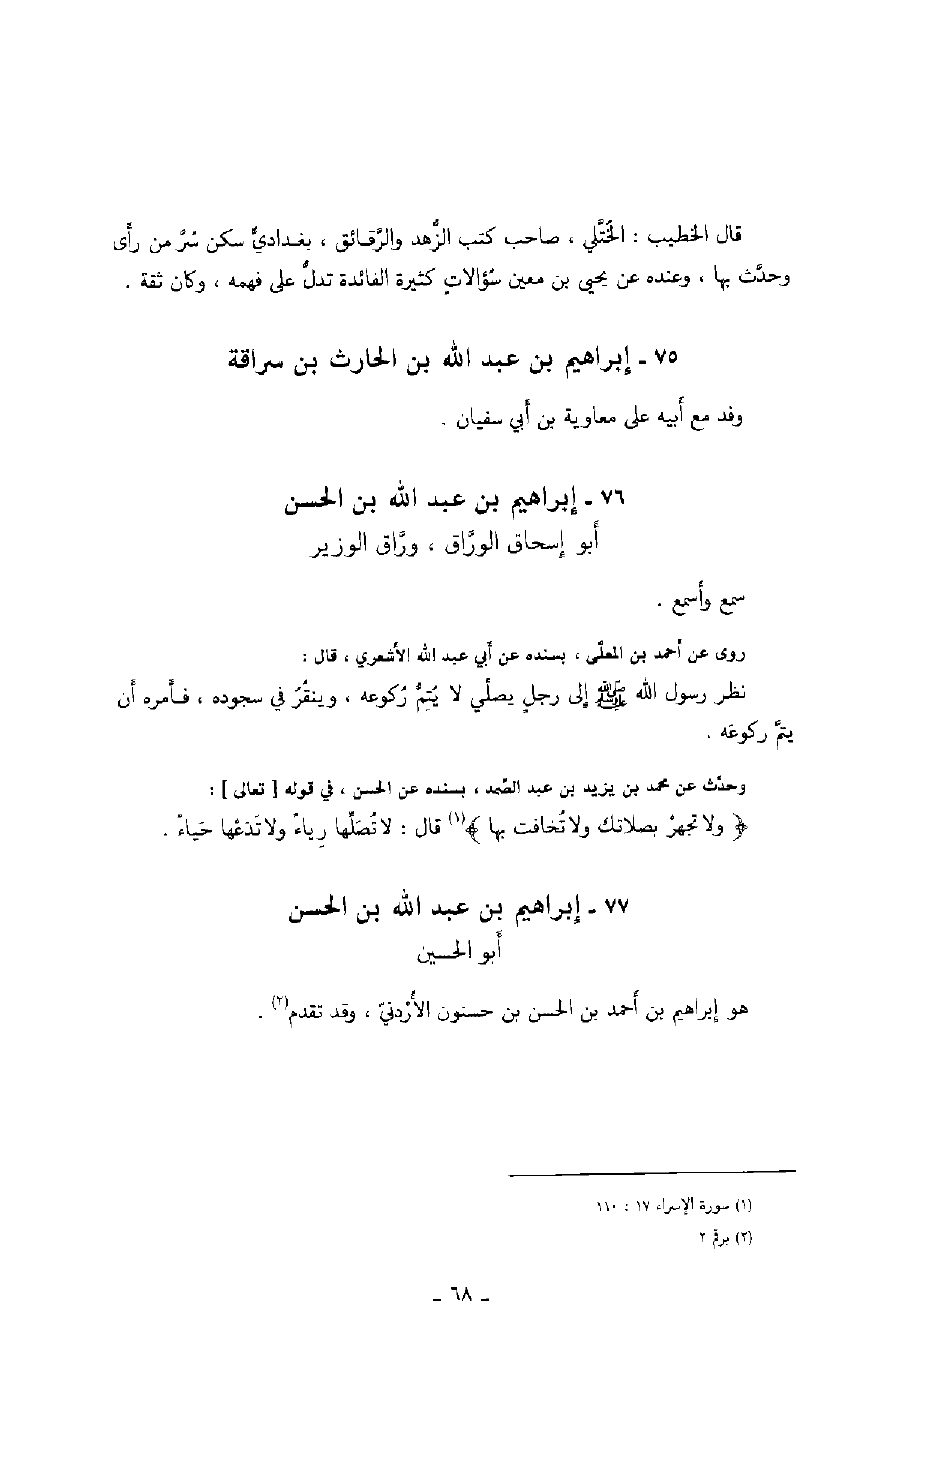 قال الخطيب : الخُتَّلي ، صاحب كتب الزُّهد والرَّقائق ، بغداديٌّ سكن سُرَّ من رأى
وحدَّث بها ، وعنده عن يحيى بن معين سُؤالاتٍ كثيرة الفائدة تدلُّ على فهمه ، وكان ثقة .
٧٥ - إبراهيم بن عبد الله بن الحارث بن سراقة
وفد مع أبيه على معاوية بن أبي سفيان .
٧٦ - إبراهيم بن عبد الله بن الحسن
أبو إسحاق الورَّاق ، ورَّاق الوزير
سمع وأسمع .
روى عن أحمد بن المعلّى ، بسنده عن أبي عبد الله الأشعري ، قال :
نظر رسول الله ﷺ إلى رجلٍ يصلّي لا يُتِمُّ رُكوعه ، وينقُرُ في سجوده ، فأمره أن
يتمَّ ركوعَه .
وحدَّث عن محمد بن يزيد بن عبد الصَّمد ، بسنده عن الحسن ، في قوله [ تعالى ] :
﴿ ولا تجهرْ بصلاتك ولا تُخافت بها ﴾(١) قال : لا تُصَلِّها رِياءً ولا تَدَعْها حَياءً .
٧٧ - إبراهيم بن عبد الله بن الحسن
أبو الحسين
هو إبراهيم بن أحمد بن الحسن بن حسنون الأُرْدنيّ ، وقد تقدم(٢) .
(١) سورة الإسراء ١٧ : ١١٠
(٢) برقم ٢
- ٦٨ -